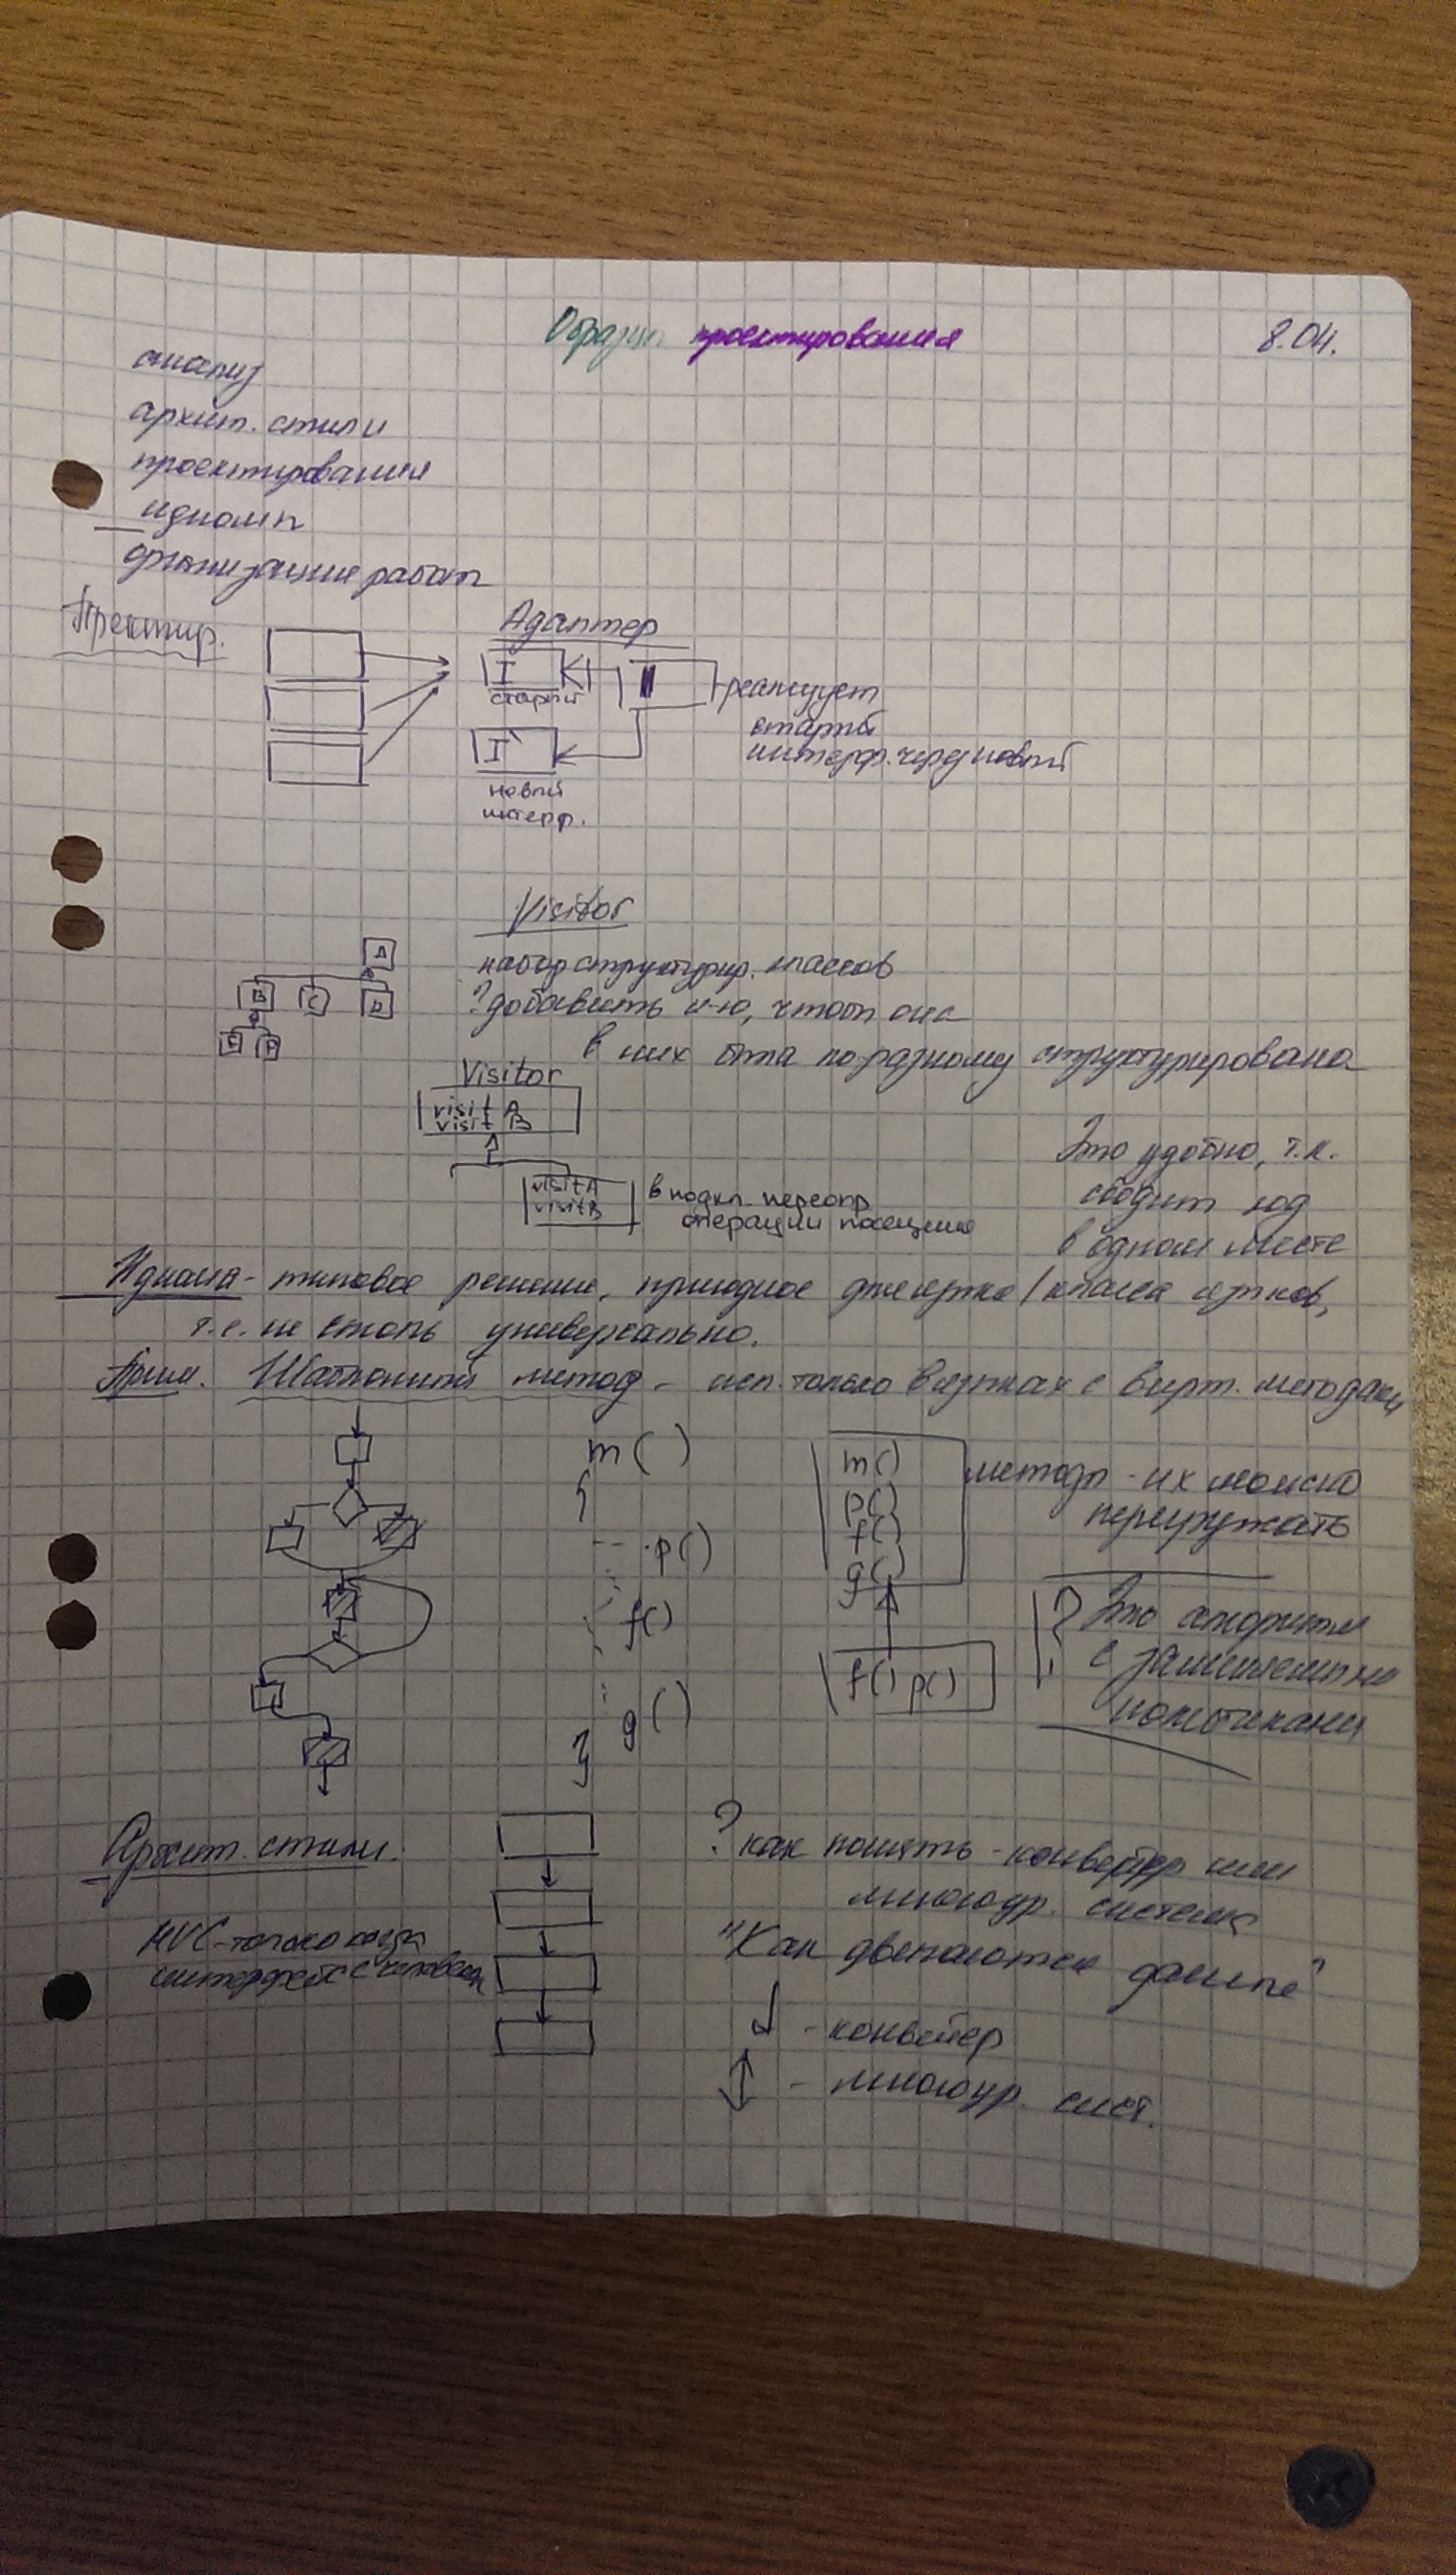 Образцы проектирования
8.04.
анализ
архит. стили
проектирования
идиомы
организация работ
Проектир.
Адаптер
I
старый
реализует
старый
интерф. через новый
I`
новый
интерф.
Visitor
набор структурир. классов
? добавить и-ю, чтобы она
в них была по-разному структурирована
A
B C D
E F
Visitor
visit A
visit B
visit A
visit B
в подкл. переопр
операции посещения
Это удобно, т.к.
сводит код
в одном месте
Идиома - типовое решение, пригодное для языка / класса языков,
т.е. не столь универсально.
Прим. Шаблонный метод - исп. только в языках с вирт. методами
m( )
{
p( )
f( )
g( )
}
m()
p()
f()
g()
методы - их можно
перегружать
f() p()
Это алгоритм
с
Архит. стили.
MVC - только когда
интерфейс с человеком
? как понять - конвейер или
многоур. система
"Как двигаются данные"
- конвейер
- многоур. сист.